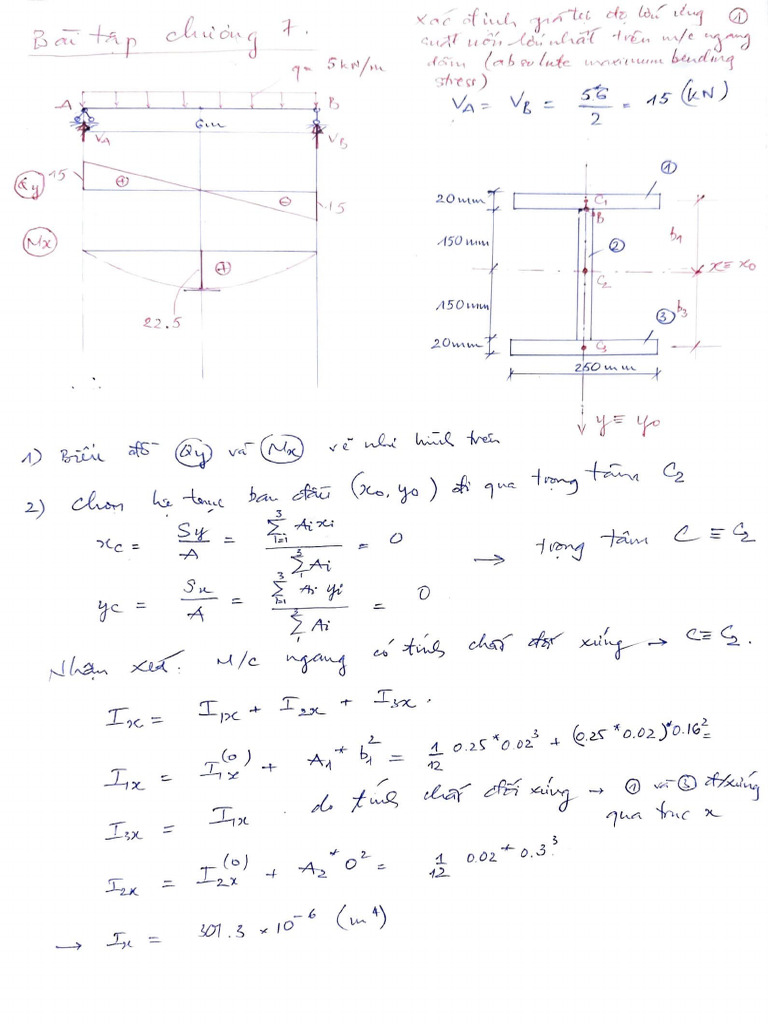 Bài tập chương 7.
Xác định giá trị độ lớn ứng ①
suất uốn lớn nhất trên m/c ngang
dầm (absolute maximum bending
stress)
q = 5kN/m
V_A = V_B = 5*6/2 = 15 (kN)
A B
6m
V_A V_B
Qy 15 + - 15
Mx +
22.5
20mm
150mm
150mm
20mm
250mm
① ② ③
C₁
B
C₂
C₃
b₁
b₃
x ≡ x₀
y ≡ y₀
1) Biểu đồ Qy và Mx vẽ như hình trên
2) Chọn hệ trục ban đầu (x₀, y₀) đi qua trọng tâm C₂
x_C = Sy/A = ∑_{i=1}^{3} Ai xi / ∑_{1}^{3} Ai = 0 → trọng tâm C ≡ C₂
y_C = Sx/A = ∑_{i=1}^{3} Ai yi / ∑_{1}^{3} Ai = 0
Nhận xét: M/c ngang có tính chất đối xứng → C ≡ C₂.
I_x = I_1x + I_2x + I_3x.
I_1x = I_1x^(0) + A₁ * b₁² = 1/12 0.25*0.02³ + (0.25*0.02)*0.16² =
I_3x = I_1x. do tính chất đối xứng → ① và ③ đ/xứng
qua trục x
I_2x = I_2x^(0) + A₂*0² = 1/12 0.02*0.3³
→ I_x = 301.3 × 10⁻⁶ (m⁴)